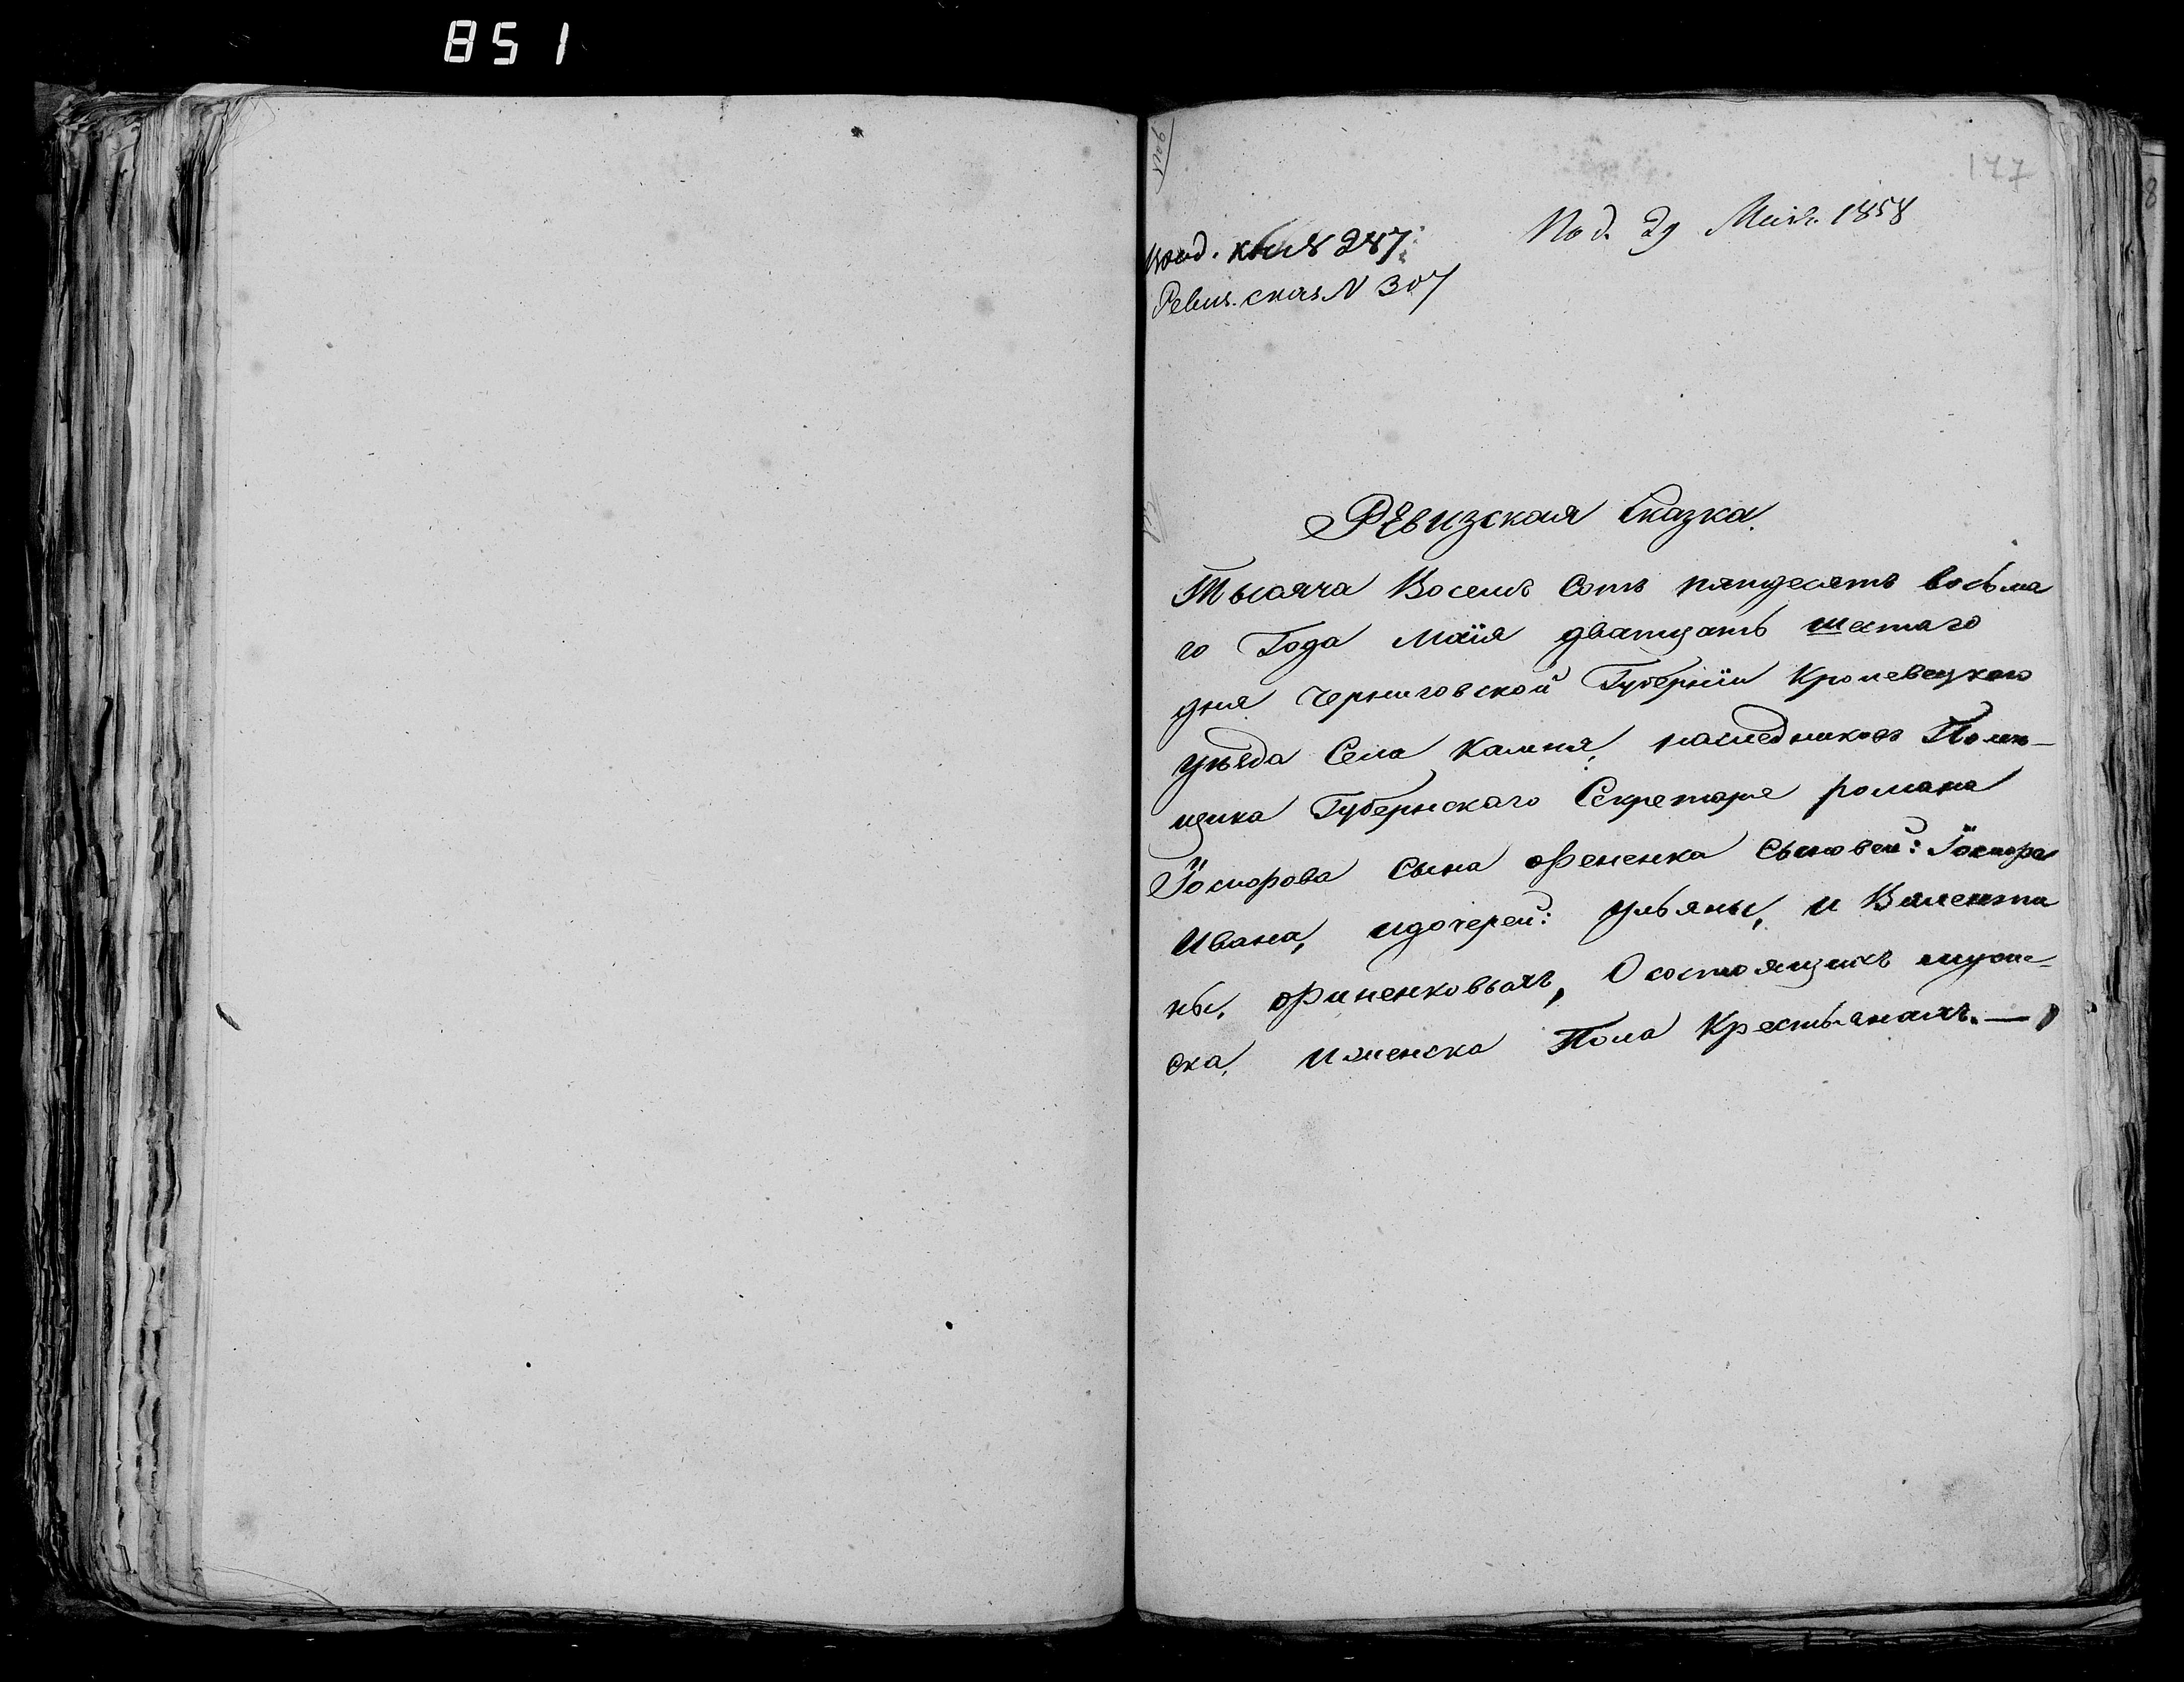 851
177
Под. 29 Мая. 1858
кн. № 287.
Ревиз. сказ. N 307
Ревизская Сказка.
Тысяча Восемь Сотъ пятдесятъ восьма
го Года Маія дватцать шестаго
дня Черниговской Губерніи Кролевецкаго
уезда Села Камня, наследниковъ Поме-
щика Губернскаго Секретаря романа
Іосифова Сына Фененка Сыновей: Іосифа
Ивана, идочерей: Ульяны, и Валенти
ны, Финенковыхъ, О состоящихъ мужс-
ска, иженска Пола Крестьянахъ. —